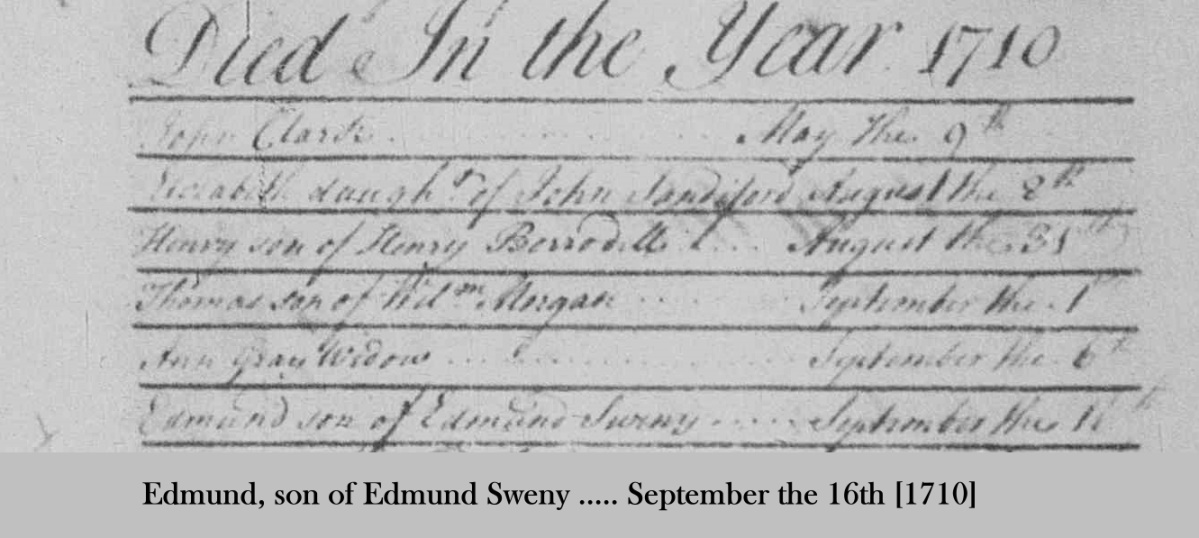 Died In the Year 1710
John Clark . . . . . . . . . . May the 9th
Elizabeth daughtr of John Sandiford August the 8th
Henry son of Henry . . . August the 31th
Thomas son of Willm Morgan . . . . September the 1
Ann Gray Widow . . . . . . . . . . September the 6th
Edmund son of Edmund Sweny . . . . . September the th
Edmund, son of Edmund Sweny ..... September the 16th [1710]